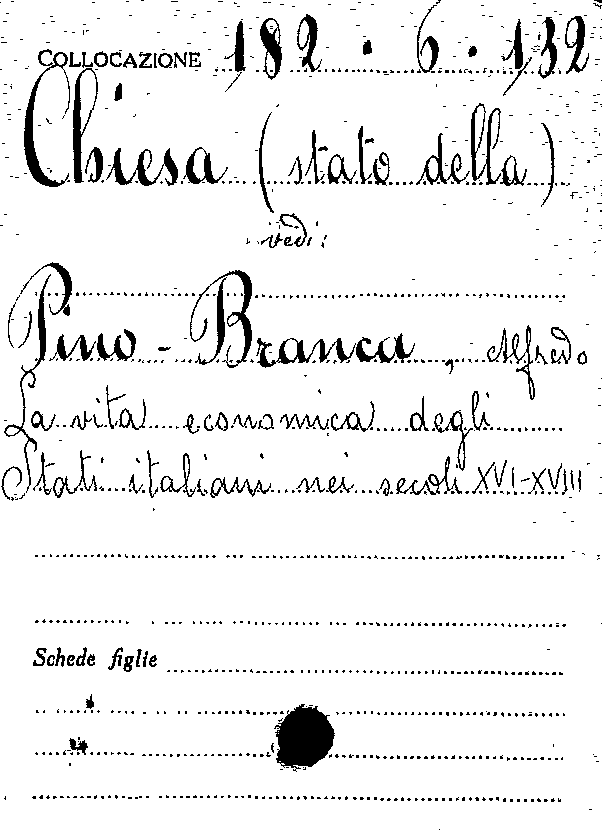 COLLOCAZIONE 182 . 6 . 132
Chiesa (stato della)
vedi:
Pino - Branca, Alfredo
La vita economica degli
Stati italiani nei secoli XVI-XVIII
Schede figlie